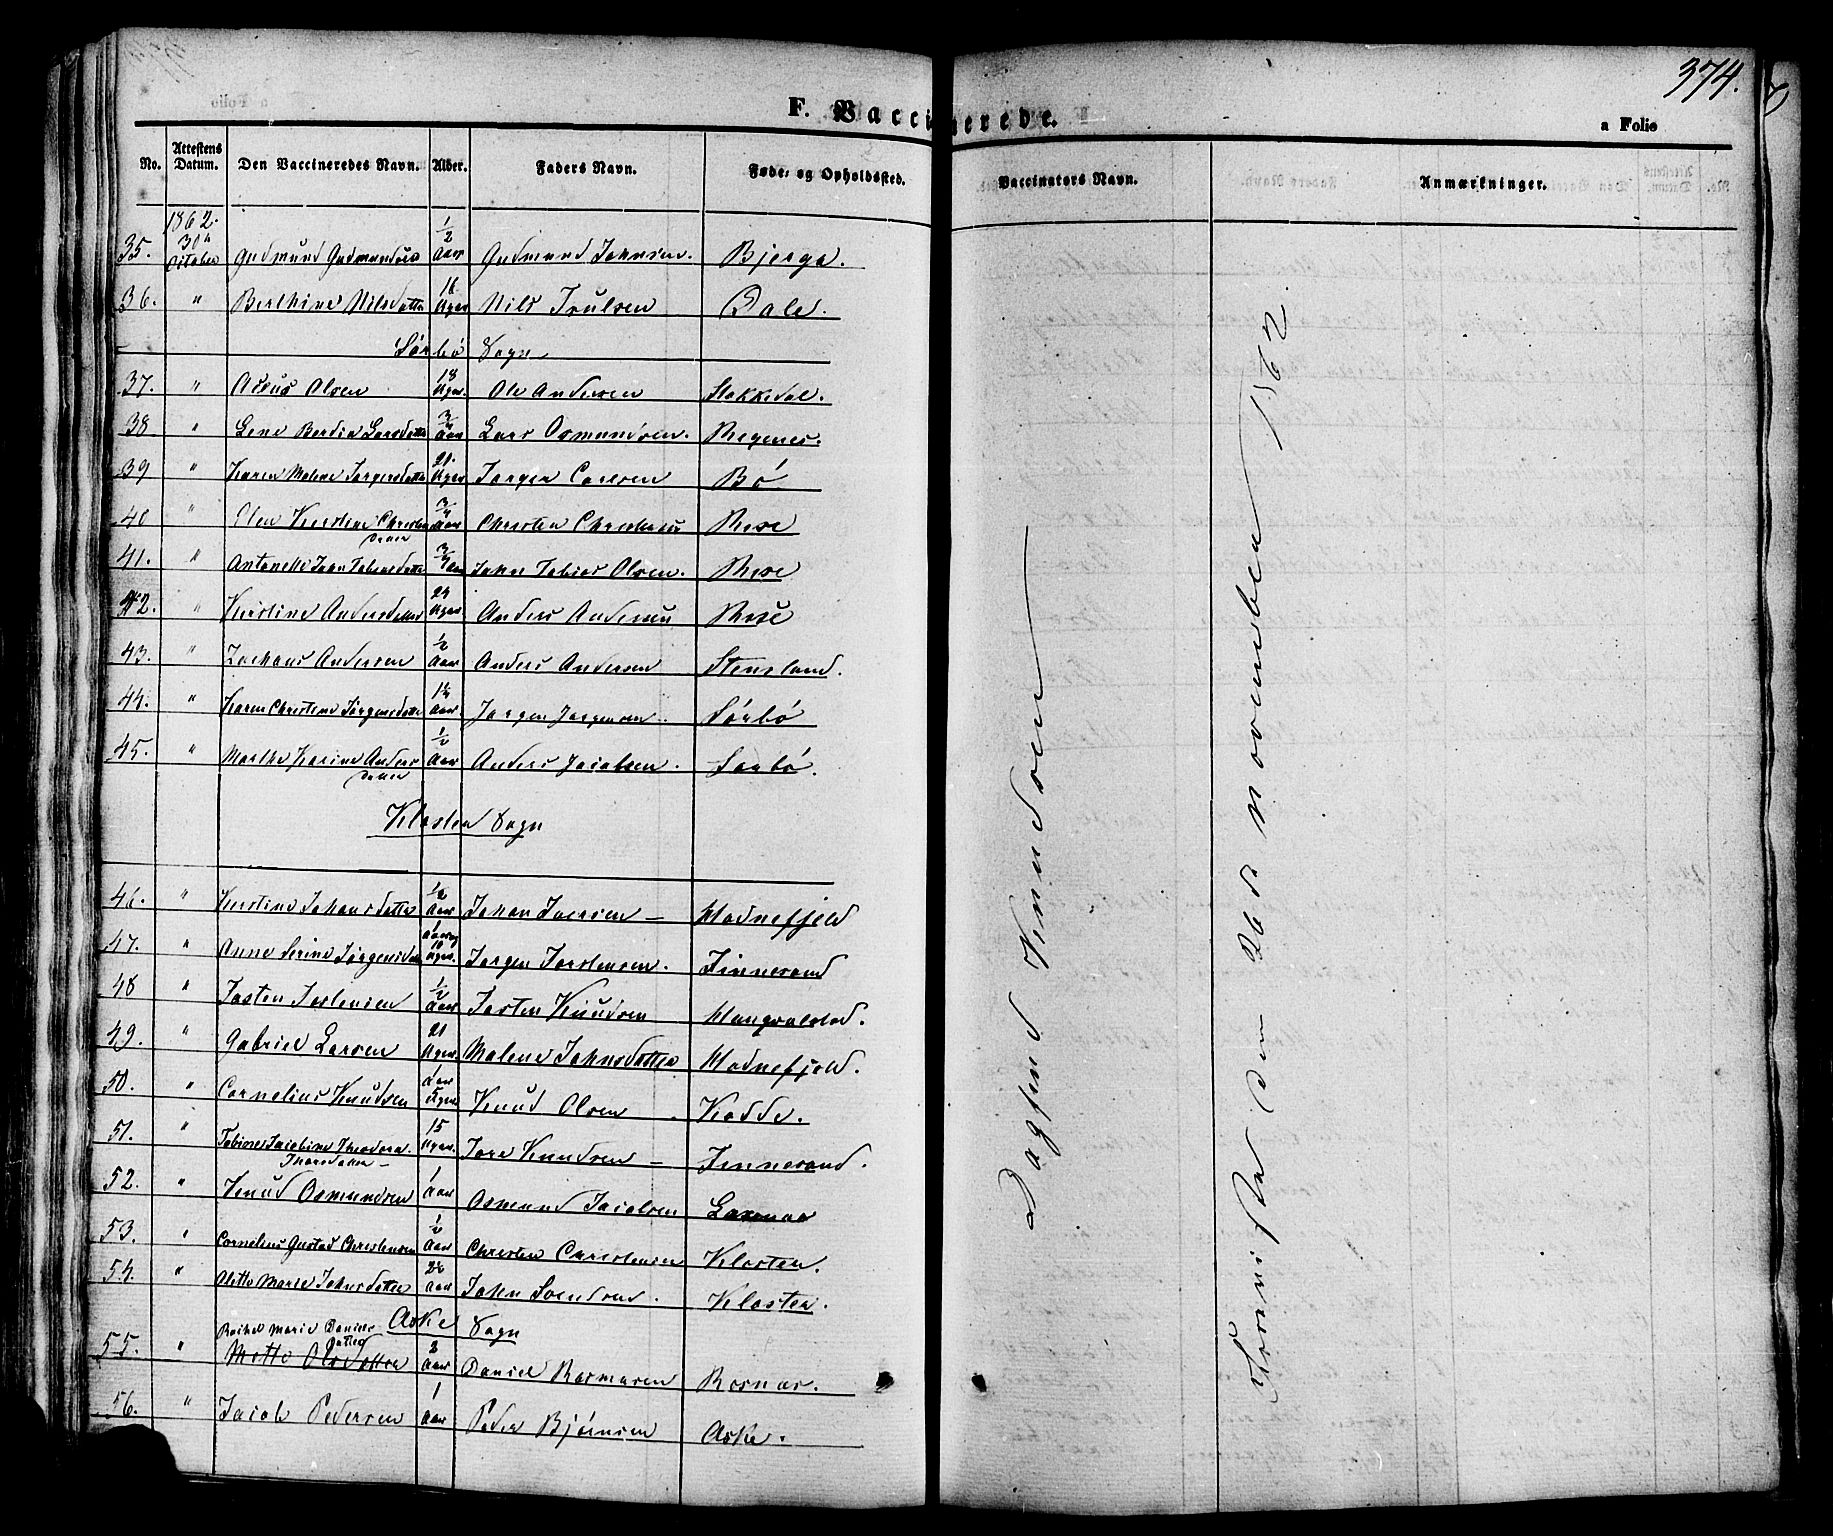 374.
F. Vaccinerede.
a Folio
No. Attestens Datum. Den Vaccineredes Navn. Alder. Faders Navn. Føde- og Opholdssted. Vaccinators Navn. Anmærkninger.
1862.
35. 30te October Gudmund Gudmundsen 1/2 Aar Gudmund Johnsen. Bjerga.
36. " Berthine Nilsdatter 16 Uger Nils Poulsen Dale.
Sørbø Sogn
37. " Asius Olsen 18 Uger. Ole Andersen Stokkedal.
38 " Lene Berdin Larsdatter 3/4 Aar Lars Osmundsen. Regnes.
39 " Karen Malene Jørgensdatter 21. Uger Jørgen Bø
40 " Olen Kirstine Christen Datter 3/4 Aar Christen Christensen Rese
41. " John Tobiasdatter 3/4 Aar John Tobias Olsen. Rese
42. " Kirstine Andersdatter 24 Uger Anders Andersen Rese
43. " Zachaus Andersen 1/2 Aar Anders Andersen Stensland.
44. " Karen Christine Jørgensdatter 1 1/4 Aar. Jørgen Jørgensen. Sørbø
45. " Marthe Karine Anders Datter 1/2 Aar Anders Jacobsen. Sørbø.
Kloster Sogn
46. " Kirstine Johansdatter 1/2 Aar Johan Iversen — Hodnefjeld
47. " Anne Serine Jørgensdatter 1 Aar og 10 Uger. Jørgen Torstensen. Finnesand
48 " Josten Jostensen 1/2 Aar Josten Knudsen
49. " Gabriel Larsen 21 Uger Malene Johnsdatter Hodnefjeld.
50. " Cornelius Knudsen 1 Aar 5 Uger Knud Olsen. Kodde.
51. " Tobine Jacobine Theodora Thorsdatter — 15 Uger. Tore Knudsen — Finnesand.
52. " Knud Osmundsen 1 Aar Osmund Jacobsen
53. " Cornelius Gustad Christensen 1/2 Aar Christen Christensen Kloster.
54. " Olette Marie Johnsdatter Aar John Svendsen. Kloster.
Aske Sogn
55. " Rachel Marie Daniels Datter Mette Olsdatter 3 Aar Daniel Rasmusen Rosnes.
56. " Jacob Pedersen 1 Aar Peder Bjørnsen Aske.
Dagfind Vinndsen
den 26de november 1862.